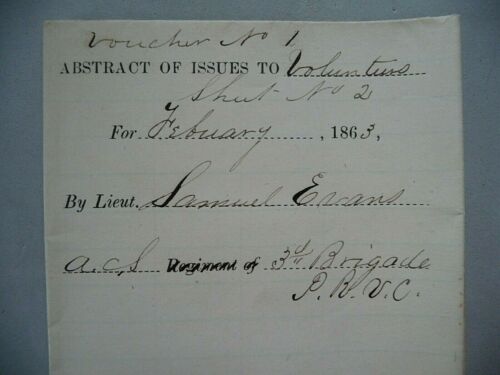 Voucher No 1
ABSTRACT OF ISSUES TO Volunteers
Sheet No 2
For Febuary, 1863,
By Lieut. Samuel Evans
A.C.S Regiment of 3d Brigade
P.R.V.C.